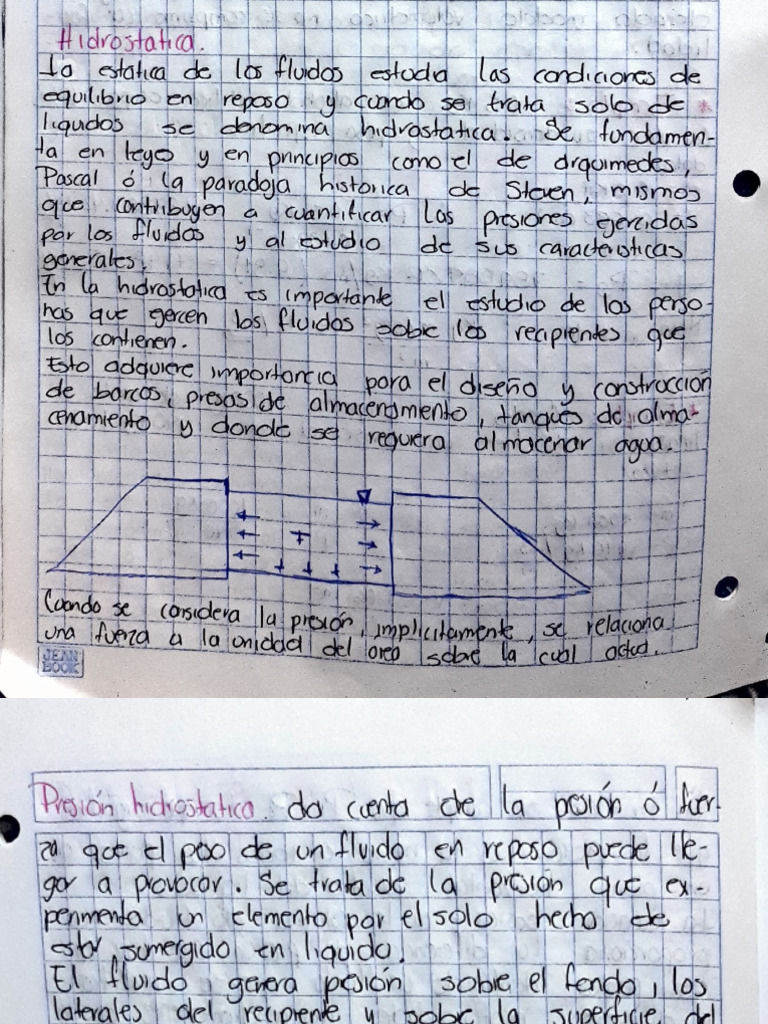 Hidrostatica.
La estatica de los fluidos estudia las condiciones de
equilibrio en reposo y cuando se trata solo de *
liqudos se denomina hidrostatica. Se fundamen-
ta en leyes y en principios como el de arquimedes,
Pascal ó la paradoja historica de Steven, mismos
que contribuyen a cuantificar las presiones gercidas
por los fluidos y al estudio de sus caracteristicas
generales.
En la hidrostatica es importante el estudio de los perso-
nas que gercen los fluidos sobre los recipientes que
los contienen.
Esto adquiere importancia para el diseño y construcción
de barcos, presas de almacenamiento, tanques de alma-
cenamiento y donde se requiera almacenar agua.
Cuando se considera la presión, implicitamente, se relaciona
una fuerza a la unidad del area sobre la cual actua.
JEAN
BOOK
Presión hidrostatica. da cuenta de la pesión ó fuer-
za que el peso de un fluido en reposo puede lle-
gar a provocar. Se trata de la presión que ex-
perimenta un elemento por el solo hecho de
estar sumergido en liquido.
El fluido genera pesión sobre el fondo, los
laterales del recipiente y sobre la superficie del